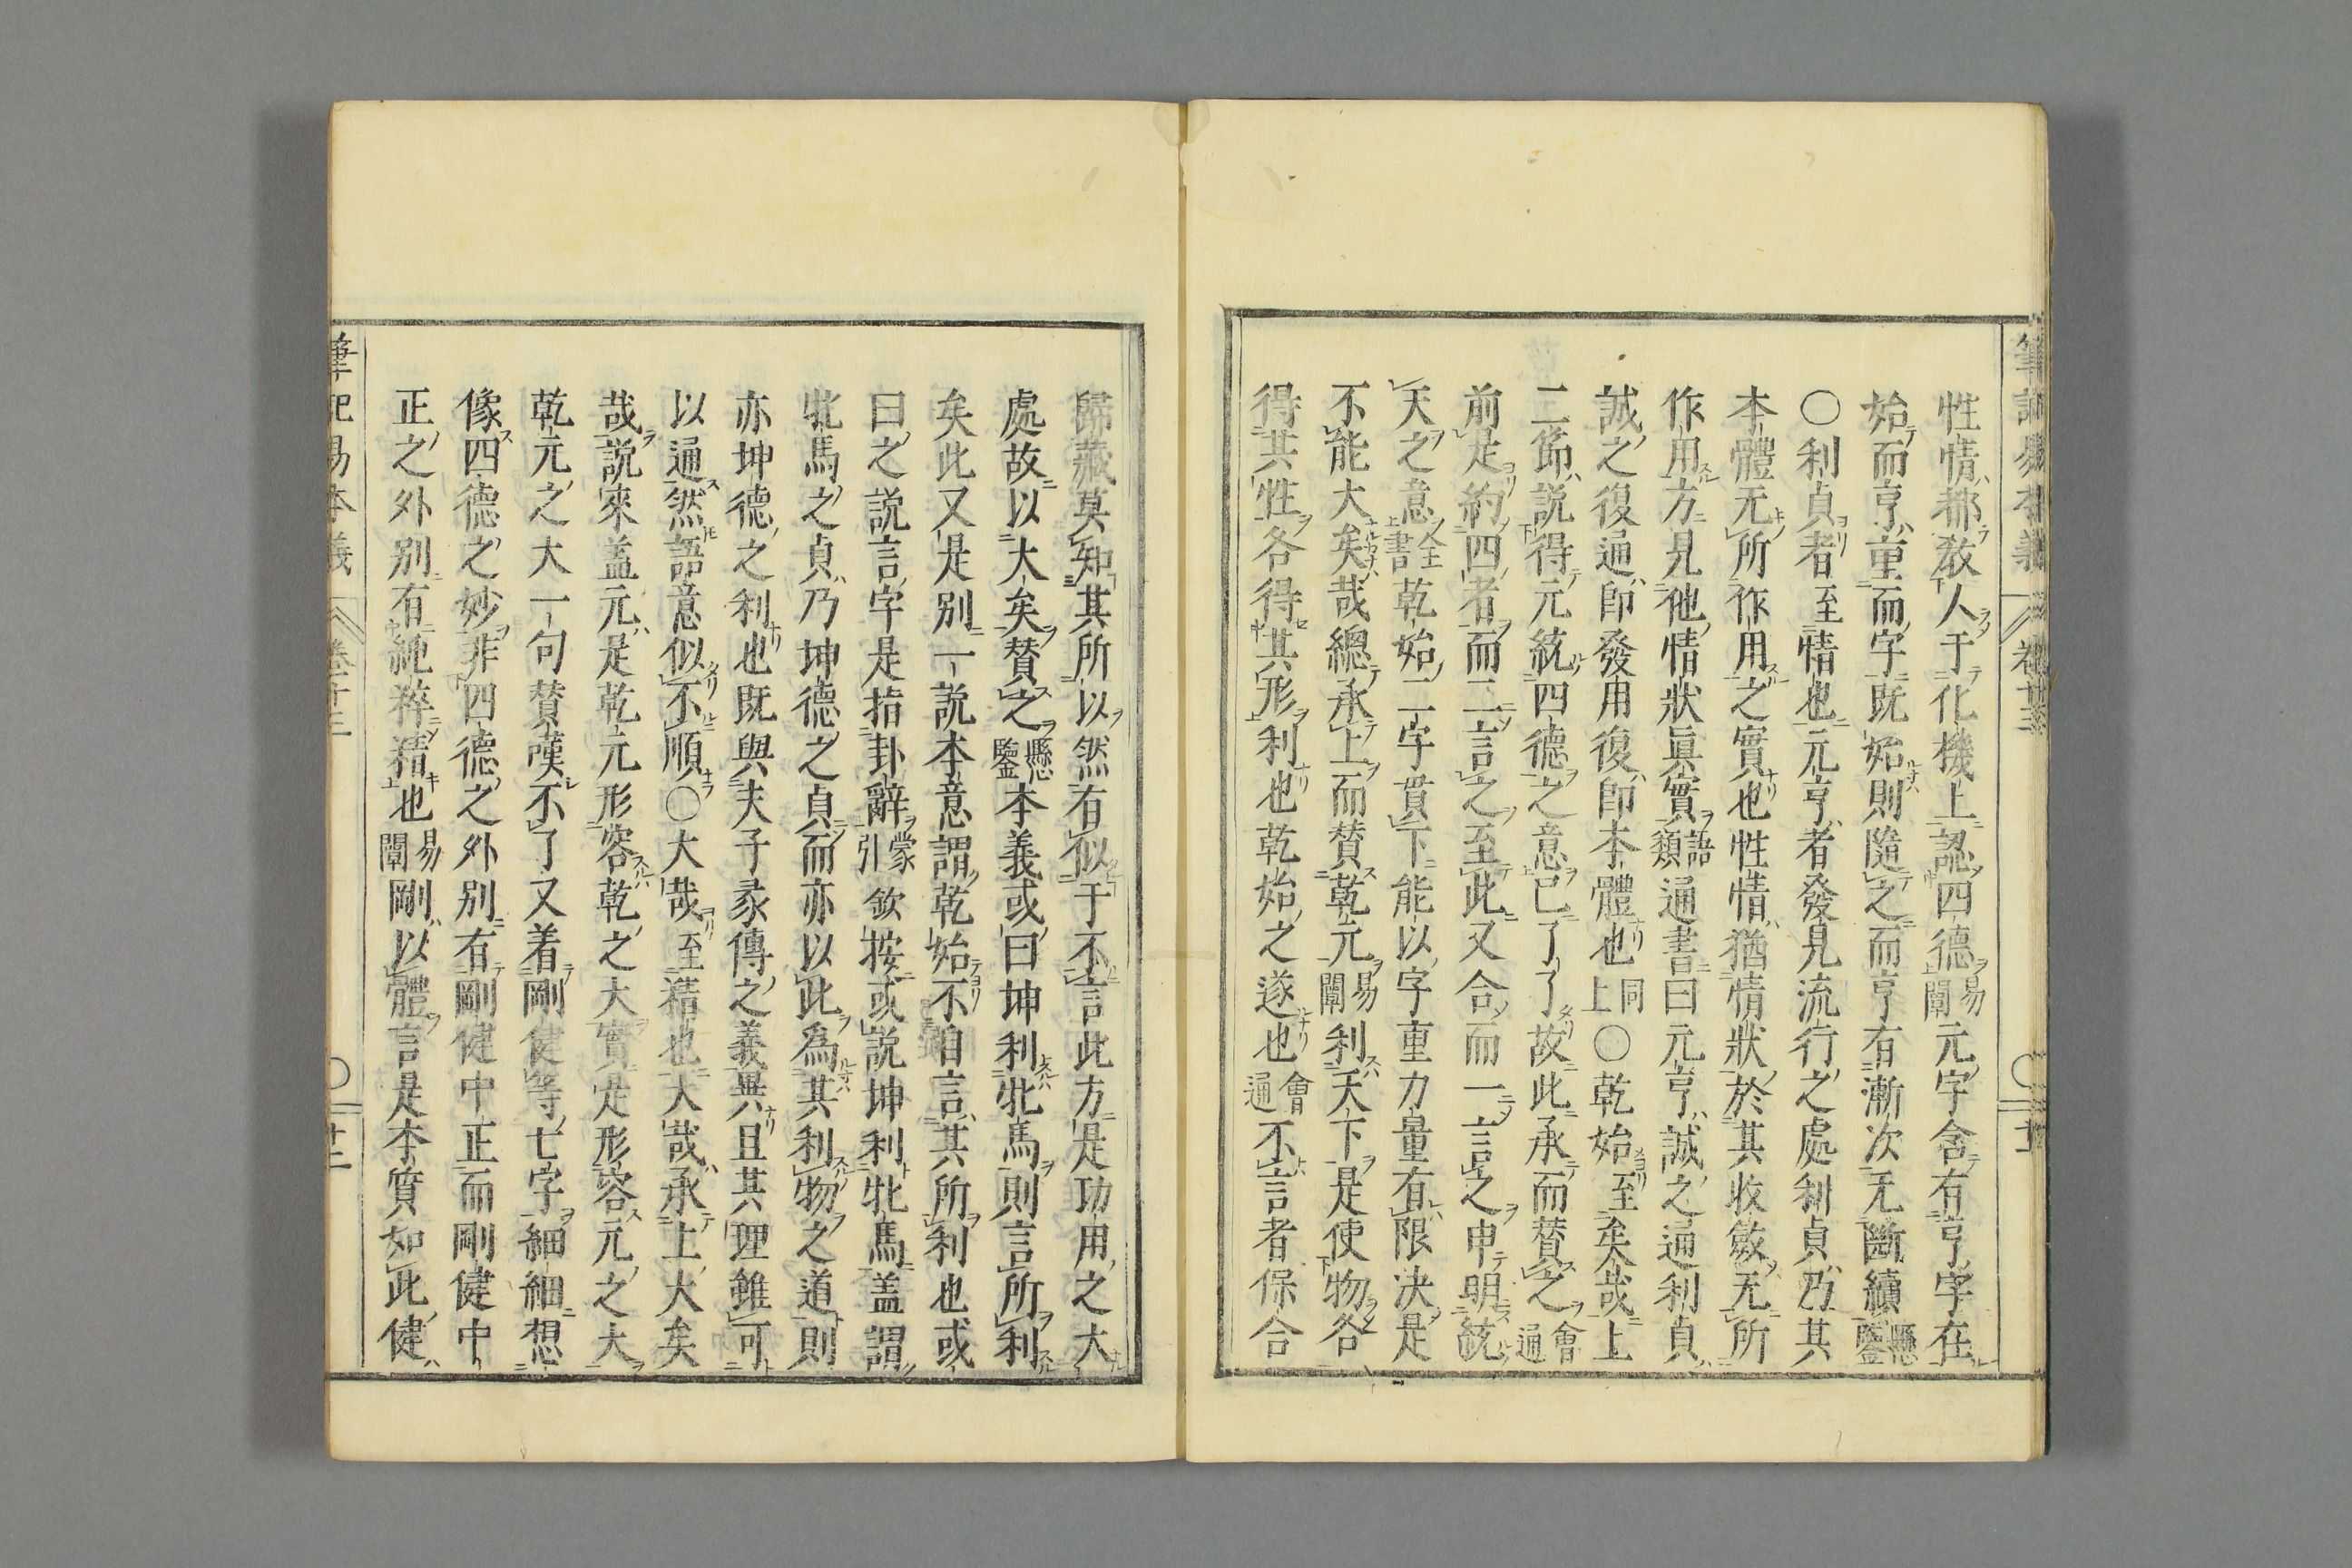 筆記易本義 卷十三 十二
性情都教人于化機上認四德易闡元字含有亨字在
始而亨重而字既始則隨之而亨有漸次无斷續懸鑒
〇利貞者至情也元亨者發見流行之處利貞乃其
本體无所作用之實也性情猶情狀於其收斂无所
作用方見他情狀真實語類通書曰元亨誠之通利貞
誠之復通即發用復即本體也同上〇乾始至矣哉上
二節說得元統四德之意已了了故此承而贊之會通
前是約四者而二言之至此又合而一言之申明統
天之意全書乾始二字貫下能以字重力量有限決是
不能大矣哉總承上而贊乾元易闡利天下是使物各
得其性各得其形利也乾始之遂也會通不言者保合
歸藏莫知其所以然有似于不言此方是功用之大
處故以大矣贊之懸鑒本義或曰坤利牝馬則言所利
矣此又是別一說本意謂乾始不自言其所利也或
曰之說言字是指卦辭蒙引欽按或說坤利牝馬蓋謂
牝馬之貞乃坤德之貞而亦以此為其利物之道則
亦坤德之利也既與夫子彖傳之義異且其理雖可
以通然語意似不順〇大哉至精也大哉承上大矣
哉說來盖元是乾元形容乾之大實是形容元之大
乾元之大一句贊嘆不了又着剛健等七字細細想
像四德之妙非四德之外別有剛健中正而剛健中
正之外別有純粹精也易闡剛以體言是本質如此健
筆記易本義 卷十三 十二